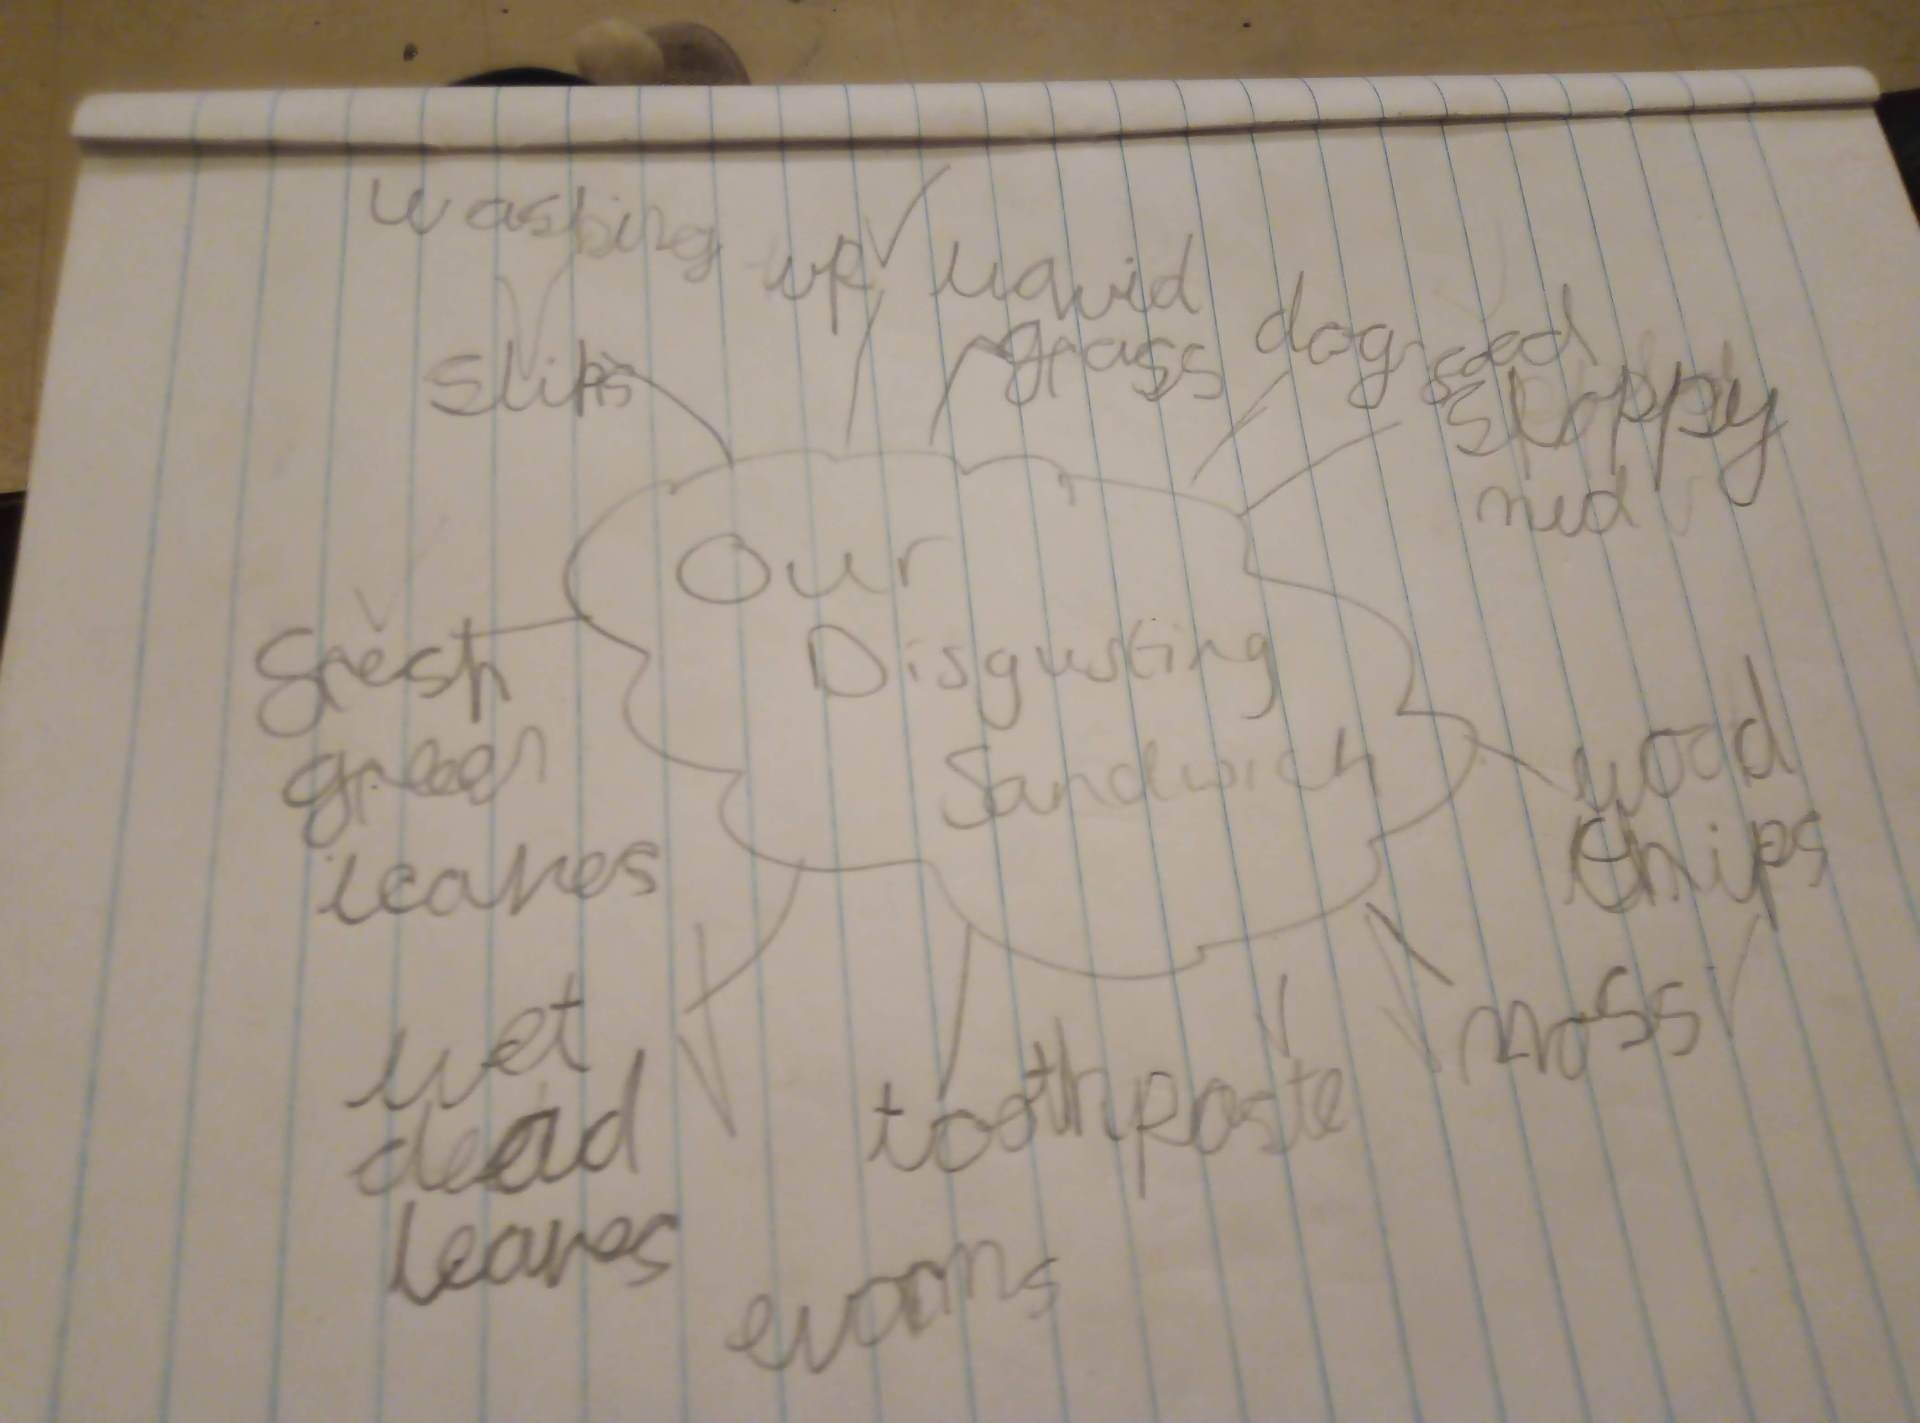 washing up liquid
grass
dog seed
sloppy
mud
Our
Disgusting
Sandwich
wood
chips
moss
toothpaste
wet
dead
leaves
fresh
green
leaves